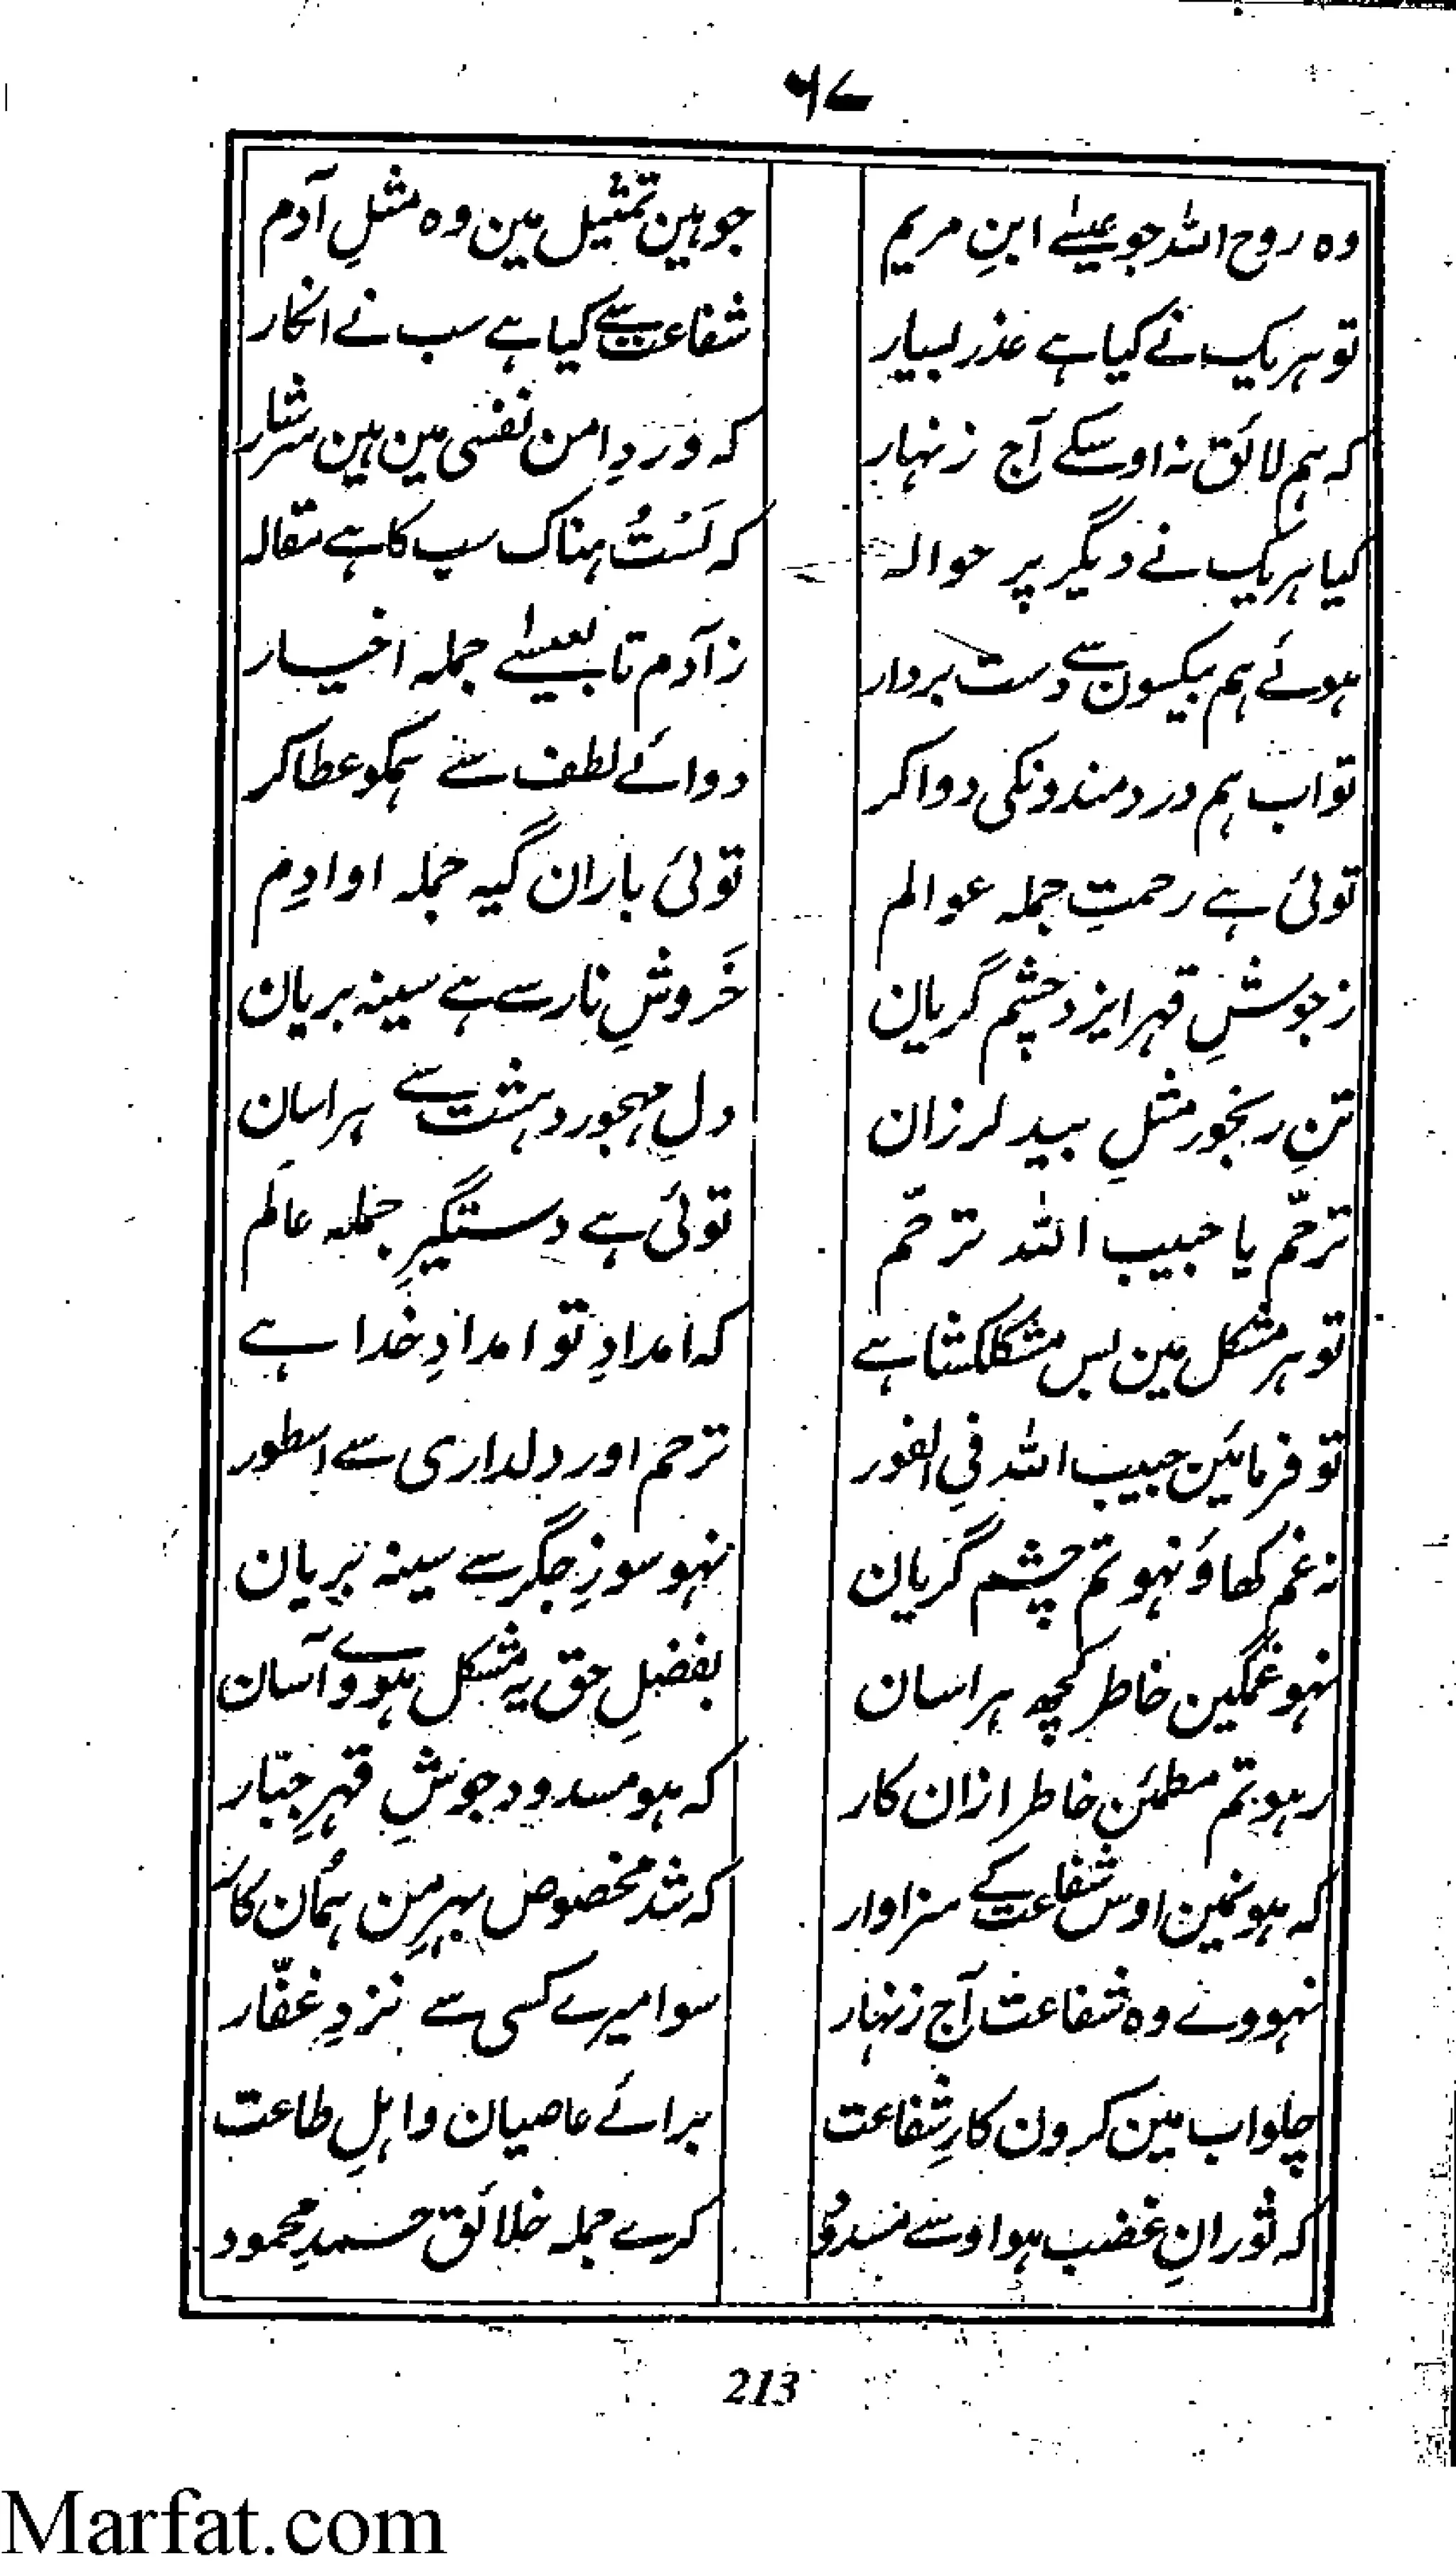 ۶۷
وہ روح اللہ جو عیسےٰ ابنِ مریم جو ہین تمثیل مین وہ مثلِ آدم
تو ہر یک نے کیا ہے عذر بسیار شفاعت سے کیا ہے سب نے انکار
کہ ہم لائق نہ اوسکے آج زنہار کہ وردِ امن نفسی مین ہین سرشار
کیا ہر یک نے دیگر پر حوالہ کہ لَسْتُ هناک سب کا ہے مقالہ
ہوئے ہم بیکسون سے دست بردار ز آدم تا بعیسےٰ جملہ اخیار
تو اب ہم دردمندونکی دوا کر دوائے لطف سے ہمکو عطا کر
توئی ہے رحمتِ جملہ عوالم توئی باران گیہ جملہ اوادِم
ز جوشِ قہر ایزد چشم گریان خَروشِ نار سے ہے سینہ بریان
تنِ رنجور مثلِ بید لرزان دلِ مہجور دہشت سے ہراسان
ترحّم یا حبیب اللہ ترحّم توئی ہے دستگیرِ جملہ عالَم
تو ہر مشکل مین بس مشکلکشا ہے کہ امدادِ تو امدادِ خدا ہے
تو فرمائین حبیب اللہ فی الفور ترحم اور دلداری سے اسطور
نہ غم کھاؤ نہو تم چشم گریان نہو سوزِ جگر سے سینہ بریان
نہو غمگین خاطر کچھ ہراسان بفضلِ حق یہ مشکل ہووے آسان
رہو تم مطمئن خاطر ازان کار کہ ہو مسدود جوشِ قہرِ جبّار
کہ ہونمین اوس شفاعت کے سزاوار کہ شد مخصوص بہرِ من ہمُان کار
نہووے وہ شفاعت آج زنہار سوا میرے کسی سے نزدِ غفّار
چلو اب مین کرون کارِ شفاعت برائے عاصیان و اہلِ طاعت
کہ ثورانِ غضب ہو اوسے مسدود کرے جملہ خلائق حمدِ محمود
213
Marfat.com